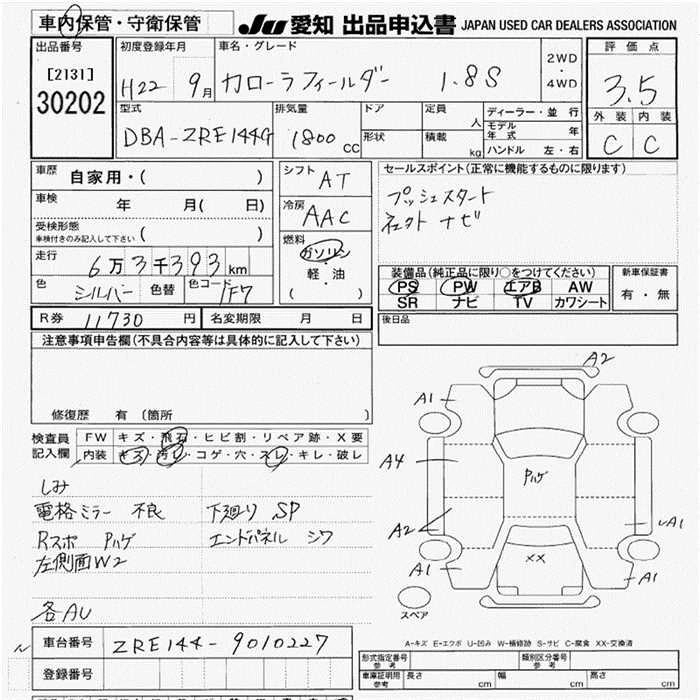 車内保管・守衛保管
JU 愛知 出品申込書 JAPAN USED CAR DEALERS ASSOCIATION
出品番号 初度登録年月 車名・グレード 評価点
[2131] 30202
H22年 9月 カローラフィールダー 1.8S 2WD・4WD 3.5
型式 排気量 ドア 定員 人 ディーラー・並行 外装 内装
DBA-ZRE144G 1800cc 形状 積載 kg モデル年式 年 C C
ハンドル 左・右
車歴 自家用・( ) シフト AT セールスポイント(正常に機能するものに限ります)
車検 年 月( 日) 冷房 AAC プッシュスタート
受検形態 ( )
車検付きのみ記入して下さい
ナビ
走行 6万3千393km 燃料 ガソリン・軽・油 ( )
色 シルバー 色替 色コード 1F7
装備品(純正品に限り○をつけてください) 新車保証書
PS PW エアB AW 有・無
SR ナビ TV カワシート
R券 11730円 名変期限 月 日 後日品
注意事項申告欄(不具合内容等は具体的に記入して下さい)
修復歴 有 〔箇所 〕
検査員記入欄 FW キズ・飛石・ヒビ割・リペア跡・X要
内装 キズ・汚レ・コゲ・穴・スレ・キレ・破レ
しみ
電格ミラー 不良 下廻り SP
Rスポ Pハゲ エンドパネル シワ
左側面W2
各AU
A2
A1 A1
A4 Pハゲ
A2 A1
XX
A1 A1
スペア
A-キズ E-エクボ U-凹み W-補修跡 S-サビ C-腐食 XX-交換済
車台番号 ZRE144-9010227
登録番号
形式指定番号 参考 類別区分番号 参考
車庫証明用 参考 長さ cm 幅 cm 高さ cm